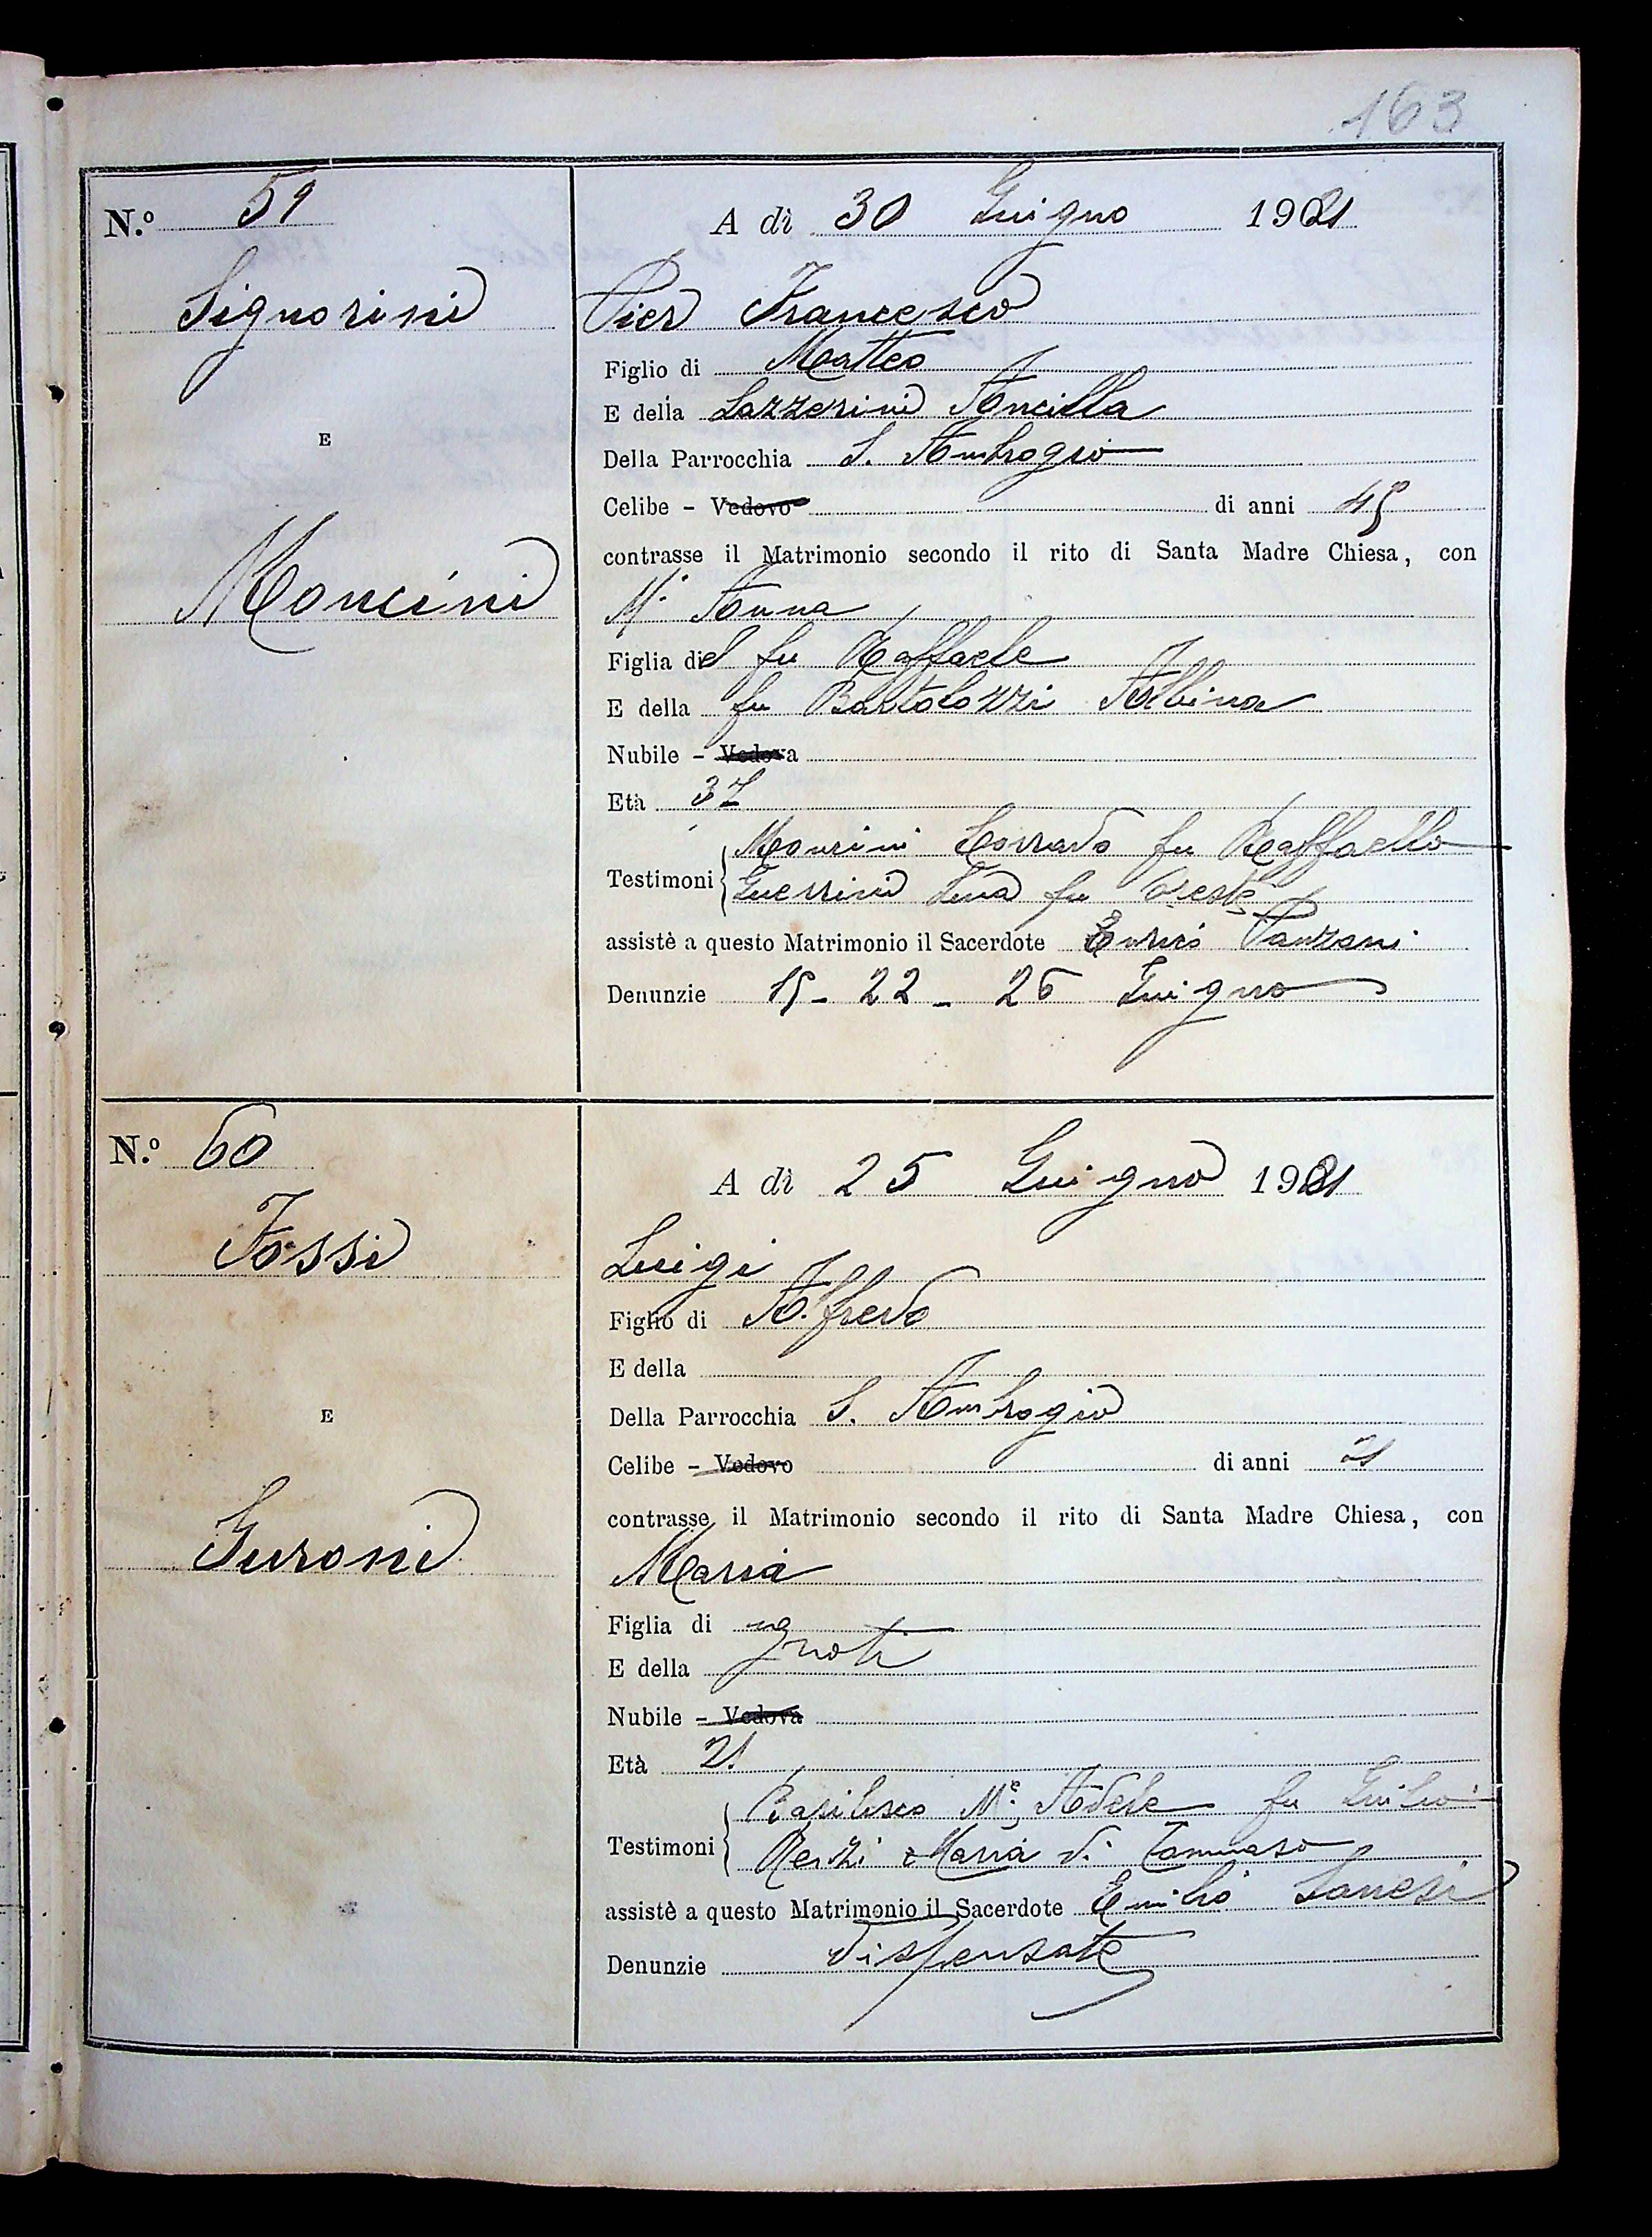 163
N.º 59
A dì 30 Giugno 1921
Signorini
Pier Francesco
Figlio di Matteo
E della Lazzerini Ancilla
E
Della Parrocchia S. Ambrogio
Celibe - Vedovo di anni 45
contrasse il Matrimonio secondo il rito di Santa Madre Chiesa, con
Mancini
M.a Anna
Figlia del fu Raffaele
E della fu Bartolozzi Albina
Nubile - Vedova
Età 37
Mancini Corrado fu Raffaello
Testimoni
Guerrini fu Oreste
assistè a questo Matrimonio il Sacerdote Enrico Panzani
Denunzie 19 - 22 - 26 Giugno
N.º 60
A dì 25 Giugno 1921
Fossi
Luigi
Figlio di Alfredo
E della
E
Della Parrocchia S. Ambrogio
Celibe - Vedovo di anni 21
contrasse il Matrimonio secondo il rito di Santa Madre Chiesa, con
Guroni
Maria
Figlia di
ignoti
E della
Nubile - Vedova
Età 21
M.a Adele fu Giulio
Testimoni
Renzi Maria di Tommaso
assistè a questo Matrimonio il Sacerdote Emilio Sanesi
Denunzie dispensate